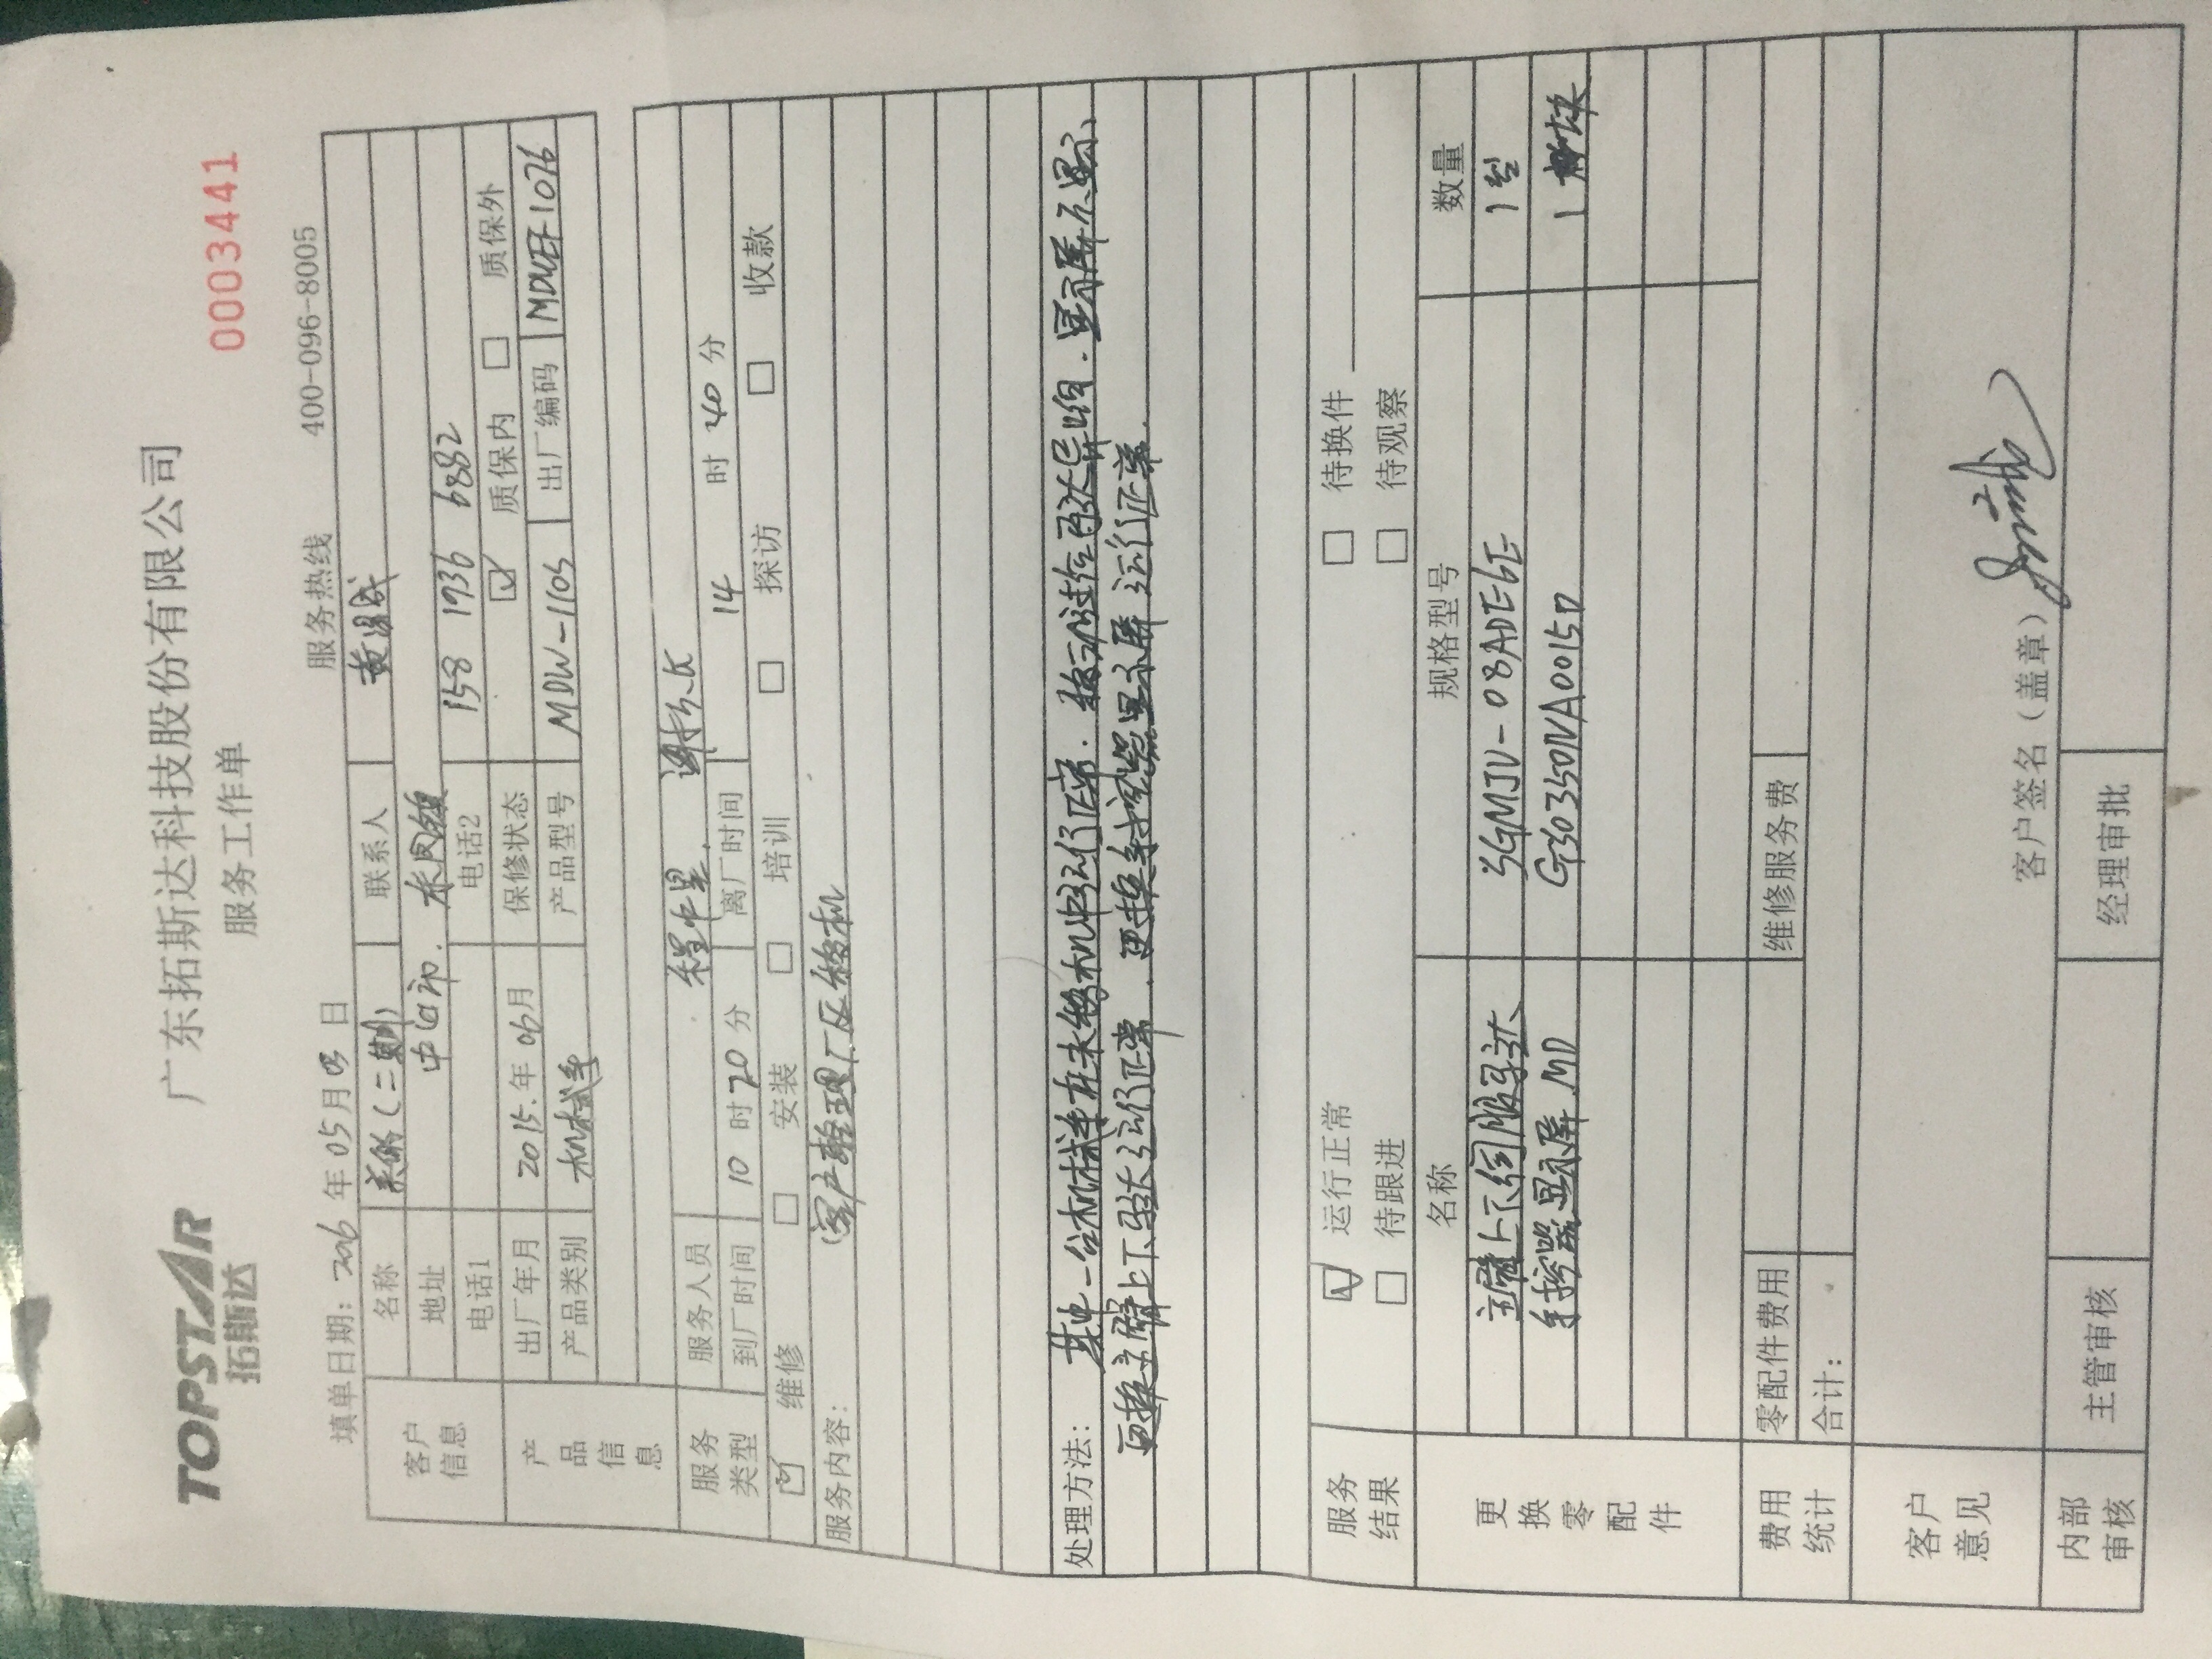 TOPSTAR
拓斯达
广东拓斯达科技股份有限公司
服务工作单
0003441
填单日期: 2016 年 05 月 03 日
服务热线 400-096-8005
客户信息
名称 (二期) 联系人
地址 中山市.
电话1 电话2 158 1936 6882
产品信息
出厂年月 2015.年 06月 保修状态 ☑ 质保内 □ 质保外
产品类别 机械手 产品型号 MDW-110S 出厂编码
服务人员
到厂时间 10 时 20 分 离厂时间 14 时 40 分
服务类型
☑ 维修 □ 安装 □ 培训 □ 探访 □ 收款
服务内容:
客户整理厂区移机
处理方法: 其中一台机械手在未移机时运行正常. 显示屏不显示
更换主臂上下马达运行正常. 更换手控器显示屏 运行正常.
服务结果
☑ 运行正常 □ 待换件
□ 待跟进 □ 待观察
更换零配件
名称 规格型号 数量
主臂上下伺服马达 SGMJV-08ADE6E 1
手控器显示屏 MD 1 块
费用统计
零配件费用 维修服务费
合计:
客户意见
客户签名(盖章)
内部审核
主管审核 经理审批